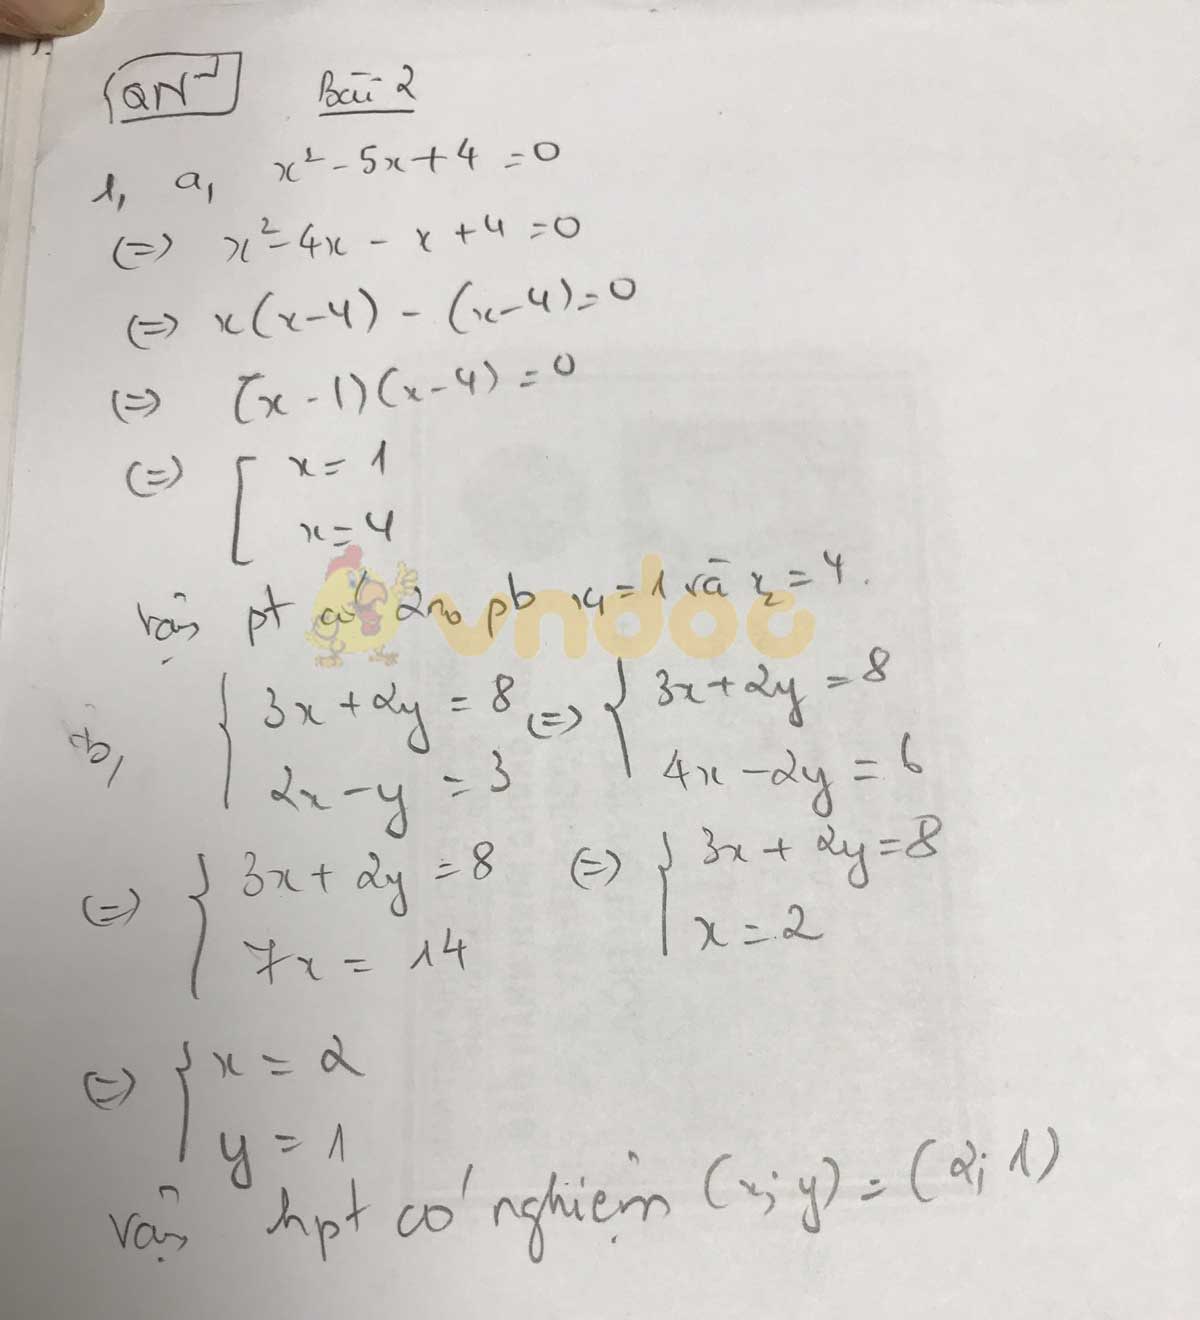 QN Bài 2
1, a, x² - 5x + 4 = 0
(=) x² - 4x - x + 4 = 0
(=) x(x-4) - (x-4) = 0
(=) (x-1)(x-4) = 0
(=) [ x = 1
x = 4
Vậy pt có 2no pb x₁ = 1 và x₂ = 4.
vndoc
b, { 3x + 2y = 8 (=) { 3x + 2y = 8
2x - y = 3 4x - 2y = 6
(=) { 3x + 2y = 8 (=) { 3x + 2y = 8
7x = 14 x = 2
(=) { x = 2
y = 1
Vậy hpt có nghiệm (x; y) = (2; 1)